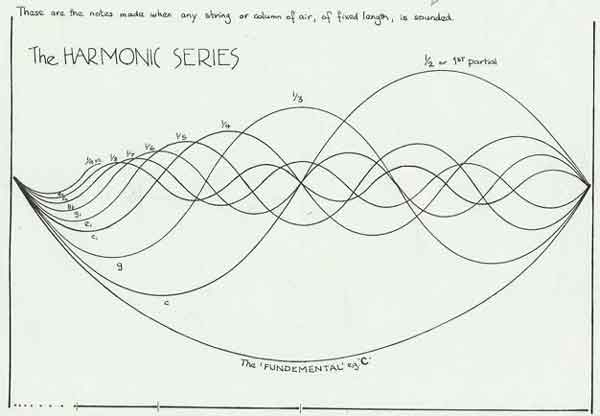 These are the notes made when any string or column of air, of fixed length, is sounded.
The HARMONIC SERIES
1/2 or 1st partial
1/3
1/4
1/5
1/6
1/7
1/8
g
c
c,
e,
g,
The 'FUNDEMENTAL' eg 'C'